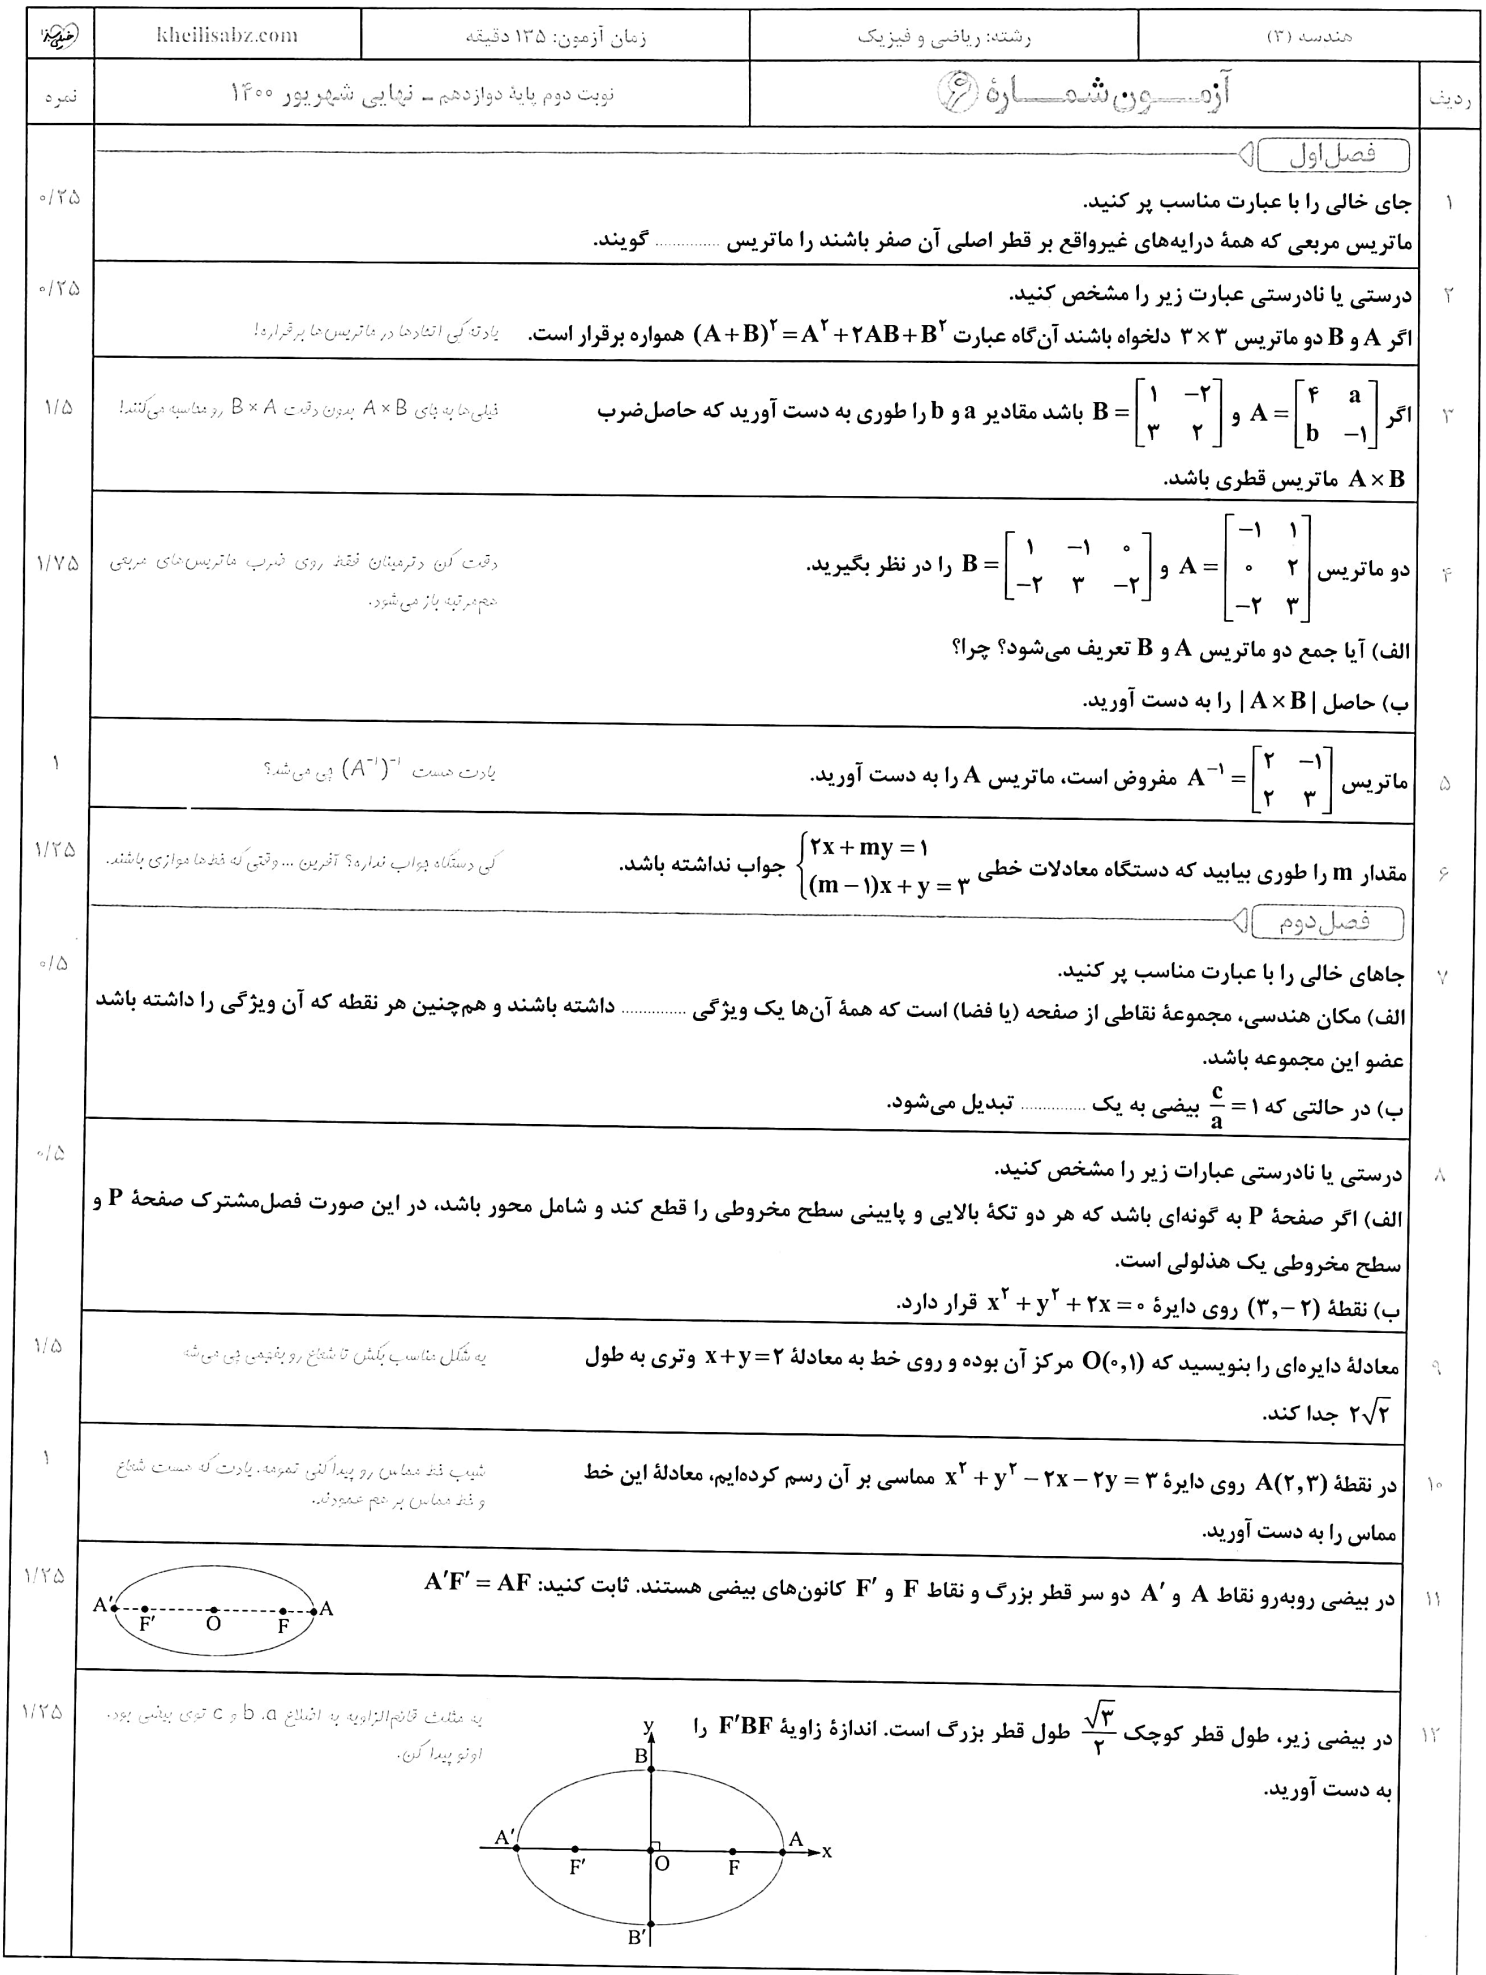 هندسه (۳)
رشته: ریاضی و فیزیک
زمان آزمون: ۱۳۵ دقیقه
kheilisabz.com
خیلی سبز
ردیف
آزمون شمارهٔ ۶
نوبت دوم پایهٔ دوازدهم ـ نهایی شهریور ۱۴۰۰
نمره
فصل اول
۱
جای خالی را با عبارت مناسب پر کنید.
۰/۲۵
ماتریس مربعی که همهٔ درایه‌های غیرواقع بر قطر اصلی آن صفر باشند را ماتریس ............... گویند.
۲
درستی یا نادرستی عبارت زیر را مشخص کنید.
۰/۲۵
اگر A و B دو ماتریس ۳×۳ دلخواه باشند آن‌گاه عبارت (A+B)^۲ = A^۲ + ۲AB + B^۲ همواره برقرار است.
یادته کی اتحادها در ماتریس‌ها برقراره!
۳
اگر A = [۴ a; b −۱] و B = [۱ −۲; ۳ ۲] باشد مقادیر a و b را طوری به دست آورید که حاصل‌ضرب
خیلی‌ها به جای A×B بدون دقت B×A رو محاسبه می‌کنند!
۱/۵
A×B ماتریس قطری باشد.
۴
دو ماتریس A = [−۱ ۱; ۰ ۲; −۲ ۳] و B = [۱ −۱ ۰; −۲ ۳ −۲] را در نظر بگیرید.
دقت کن دترمینان فقط روی ضرب ماتریس‌های مربعی
هم‌مرتبه باز می‌شود.
۱/۷۵
الف) آیا جمع دو ماتریس A و B تعریف می‌شود؟ چرا؟
ب) حاصل |A×B| را به دست آورید.
۵
ماتریس A^−۱ = [۲ −۱; ۲ ۳] مفروض است، ماتریس A را به دست آورید.
یادت هست (A^−۱)^−۱ چی می‌شد؟
۱
۶
مقدار m را طوری بیابید که دستگاه معادلات خطی {۲x + my = ۱; (m − ۱)x + y = ۳ جواب نداشته باشد.
کی دستگاه جواب نداره؟ آفرین ... وقتی که خط‌ها موازی باشند.
۱/۲۵
فصل دوم
۷
جاهای خالی را با عبارت مناسب پر کنید.
۰/۵
الف) مکان هندسی، مجموعهٔ نقاطی از صفحه (یا فضا) است که همهٔ آن‌ها یک ویژگی ............... داشته باشند و هم‌چنین هر نقطه که آن ویژگی را داشته باشد
عضو این مجموعه باشد.
ب) در حالتی که c/a = ۱ بیضی به یک ............... تبدیل می‌شود.
۸
درستی یا نادرستی عبارات زیر را مشخص کنید.
۰/۵
الف) اگر صفحهٔ P به گونه‌ای باشد که هر دو تکهٔ بالایی و پایینی سطح مخروطی را قطع کند و شامل محور باشد، در این صورت فصل‌مشترک صفحهٔ P و
سطح مخروطی یک هذلولی است.
ب) نقطهٔ (۳,−۲) روی دایرهٔ x^۲ + y^۲ + ۲x = ۰ قرار دارد.
۹
معادلهٔ دایره‌ای را بنویسید که O(۰,۱) مرکز آن بوده و روی خط به معادلهٔ x+y=۲ وتری به طول
یه شکل مناسب بکش تا شعاع رو بفهمی چی می‌شه
۱/۵
۲√۲ جدا کند.
۱۰
در نقطهٔ A(۲,۳) روی دایرهٔ x^۲ + y^۲ − ۲x − ۲y = ۳ مماسی بر آن رسم کرده‌ایم، معادلهٔ این خط
شیب خط مماس رو پیدا کنی تمومه. یادت که هست شعاع
و خط مماس بر هم عمودند.
۱
مماس را به دست آورید.
۱۱
در بیضی روبه‌رو نقاط A و A′ دو سر قطر بزرگ و نقاط F و F′ کانون‌های بیضی هستند. ثابت کنید: A′F′ = AF
A′ F′ O F A
۱/۲۵
۱۲
در بیضی زیر، طول قطر کوچک √۳/۲ طول قطر بزرگ است. اندازهٔ زاویهٔ F′BF را
یه مثلث قائم‌الزاویه به اضلاع a، b و c توی بیضی بود.
اونو پیدا کن.
۱/۲۵
به دست آورید.
y
B
A′ F′ O F A x
B′